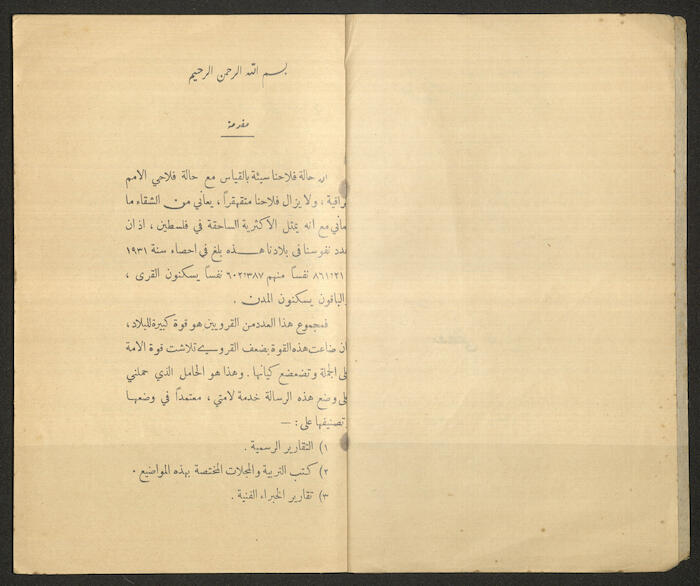 بسم الله الرحمن الرحيم
مقدمة
ان حالة فلاحنا سيئة بالقياس مع حالة فلاحي الامم
راقية ، ولا يزال فلاحنا متقهقراً ، يعاني من الشقاء ما
ماني مع انه يمثل الاكثرية الساحقة في فلسطين ، اذ ان
عدد نفوسنا في بلادنا هذه بلغ في احصاء سنة ١٩٣١
٨٦١٢١١ نفساً منهم ٦٠٢٣٨٧ نفساً يسكنون القرى ،
والباقون يسكنون المدن .
فمجموع هذا العدد من القرويين هو قوة كبيرة للبلاد ،
ان ضاعت هذه القوة بضعف القروي تلاشت قوة الامة
على الجملة وتضعضع كيانها . وهذا هو الحامل الذي حملني
على وضع هذه الرسالة خدمة لامتي ، معتمداً في وضعها
وتصنيفها على : —
١) التقارير الرسمية .
٢) كتب التربية والمجلات المختصة بهذه المواضيع .
٣) تقارير الخبراء الفنية .